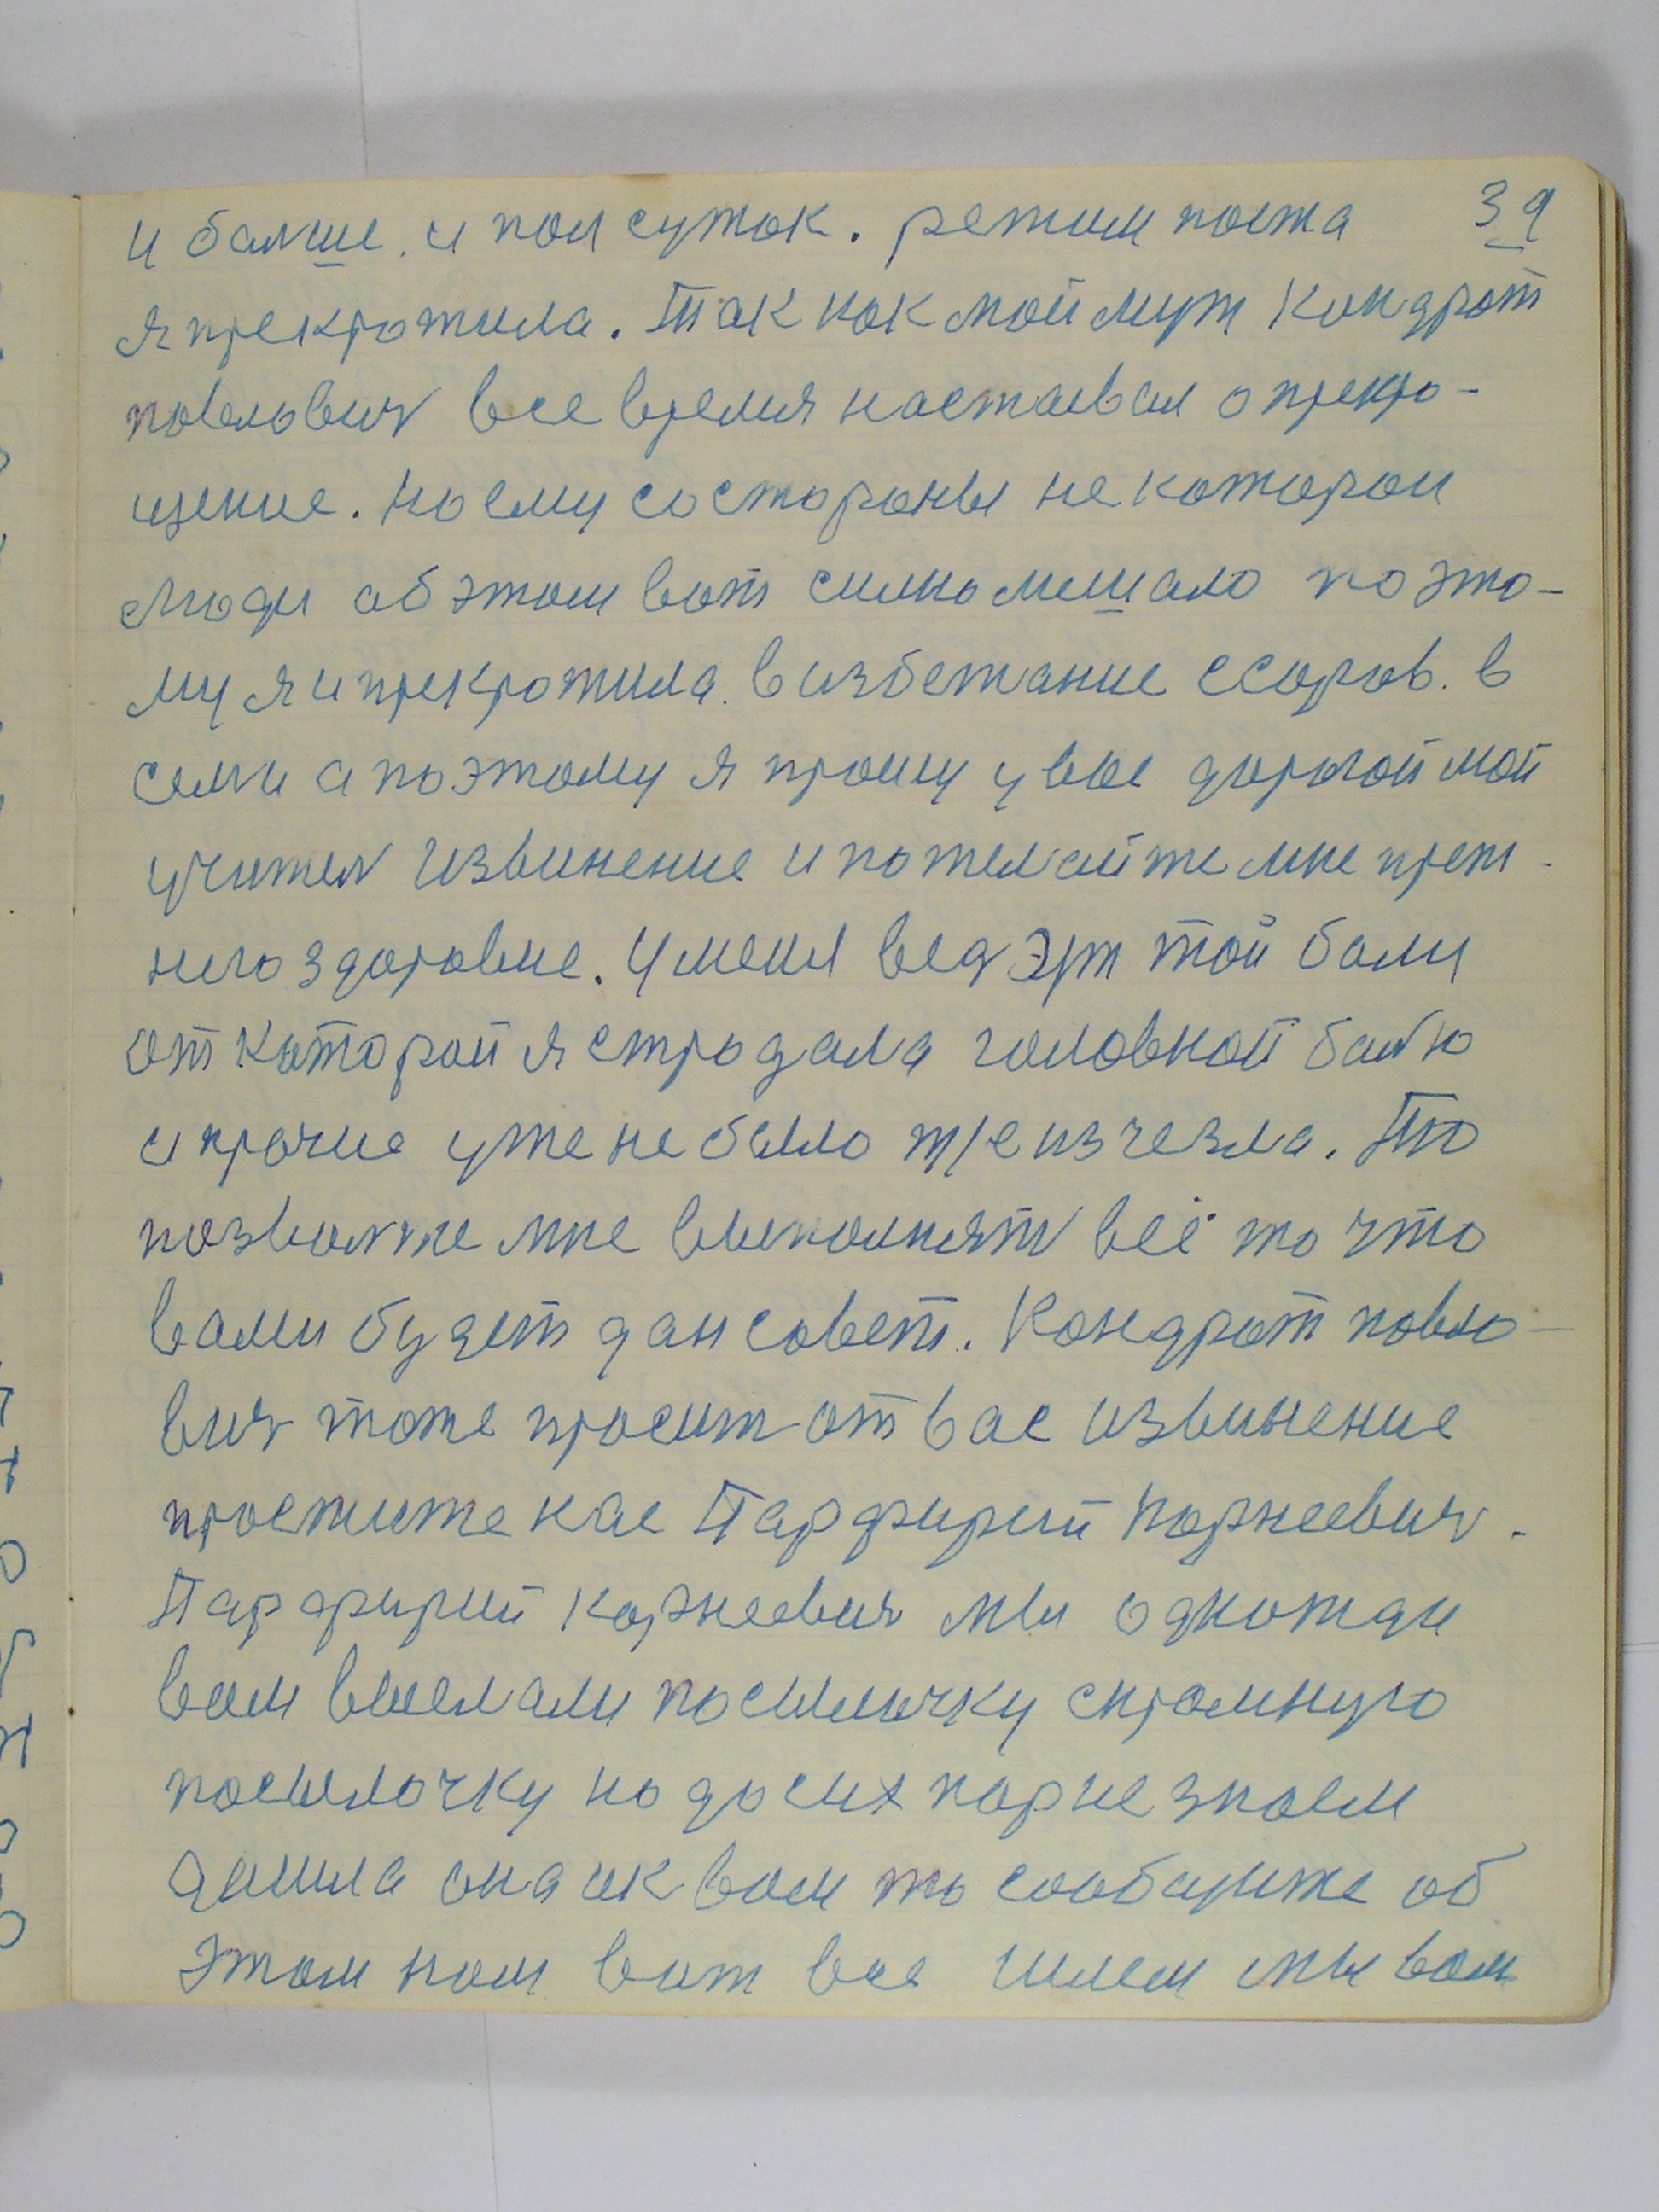 и балше. и пол суток. режим поста 39
я прекротила. Так как мой муж Кондрот
повлович все время настаевал о прекро-
щение. Но ему со стораны не каторои
люди об этом вот силно мешало поэто-
му я и прекротила. в избежание ссоров. в
семи а поэтому я прошу у вас дорогой мой
учител извинение и пожелайте мне преж-
него здоровие. У меня вед эт той боли
от которой я стродала головной болю
и прочие уже не было т/е изчезла. То
позволте мне выполнят всё то что
вами будет дан совет. Кондрот повло-
вич тоже просит от вас извинение
простите нас Парфирий Корнеевич.
Парфирий Корнеевич мы одножди
вам выслали посылычку скромную
посылочку но до сих пор не знаем
дошла она и к вам то сообщите об
этом нам вот все шлем мы вам